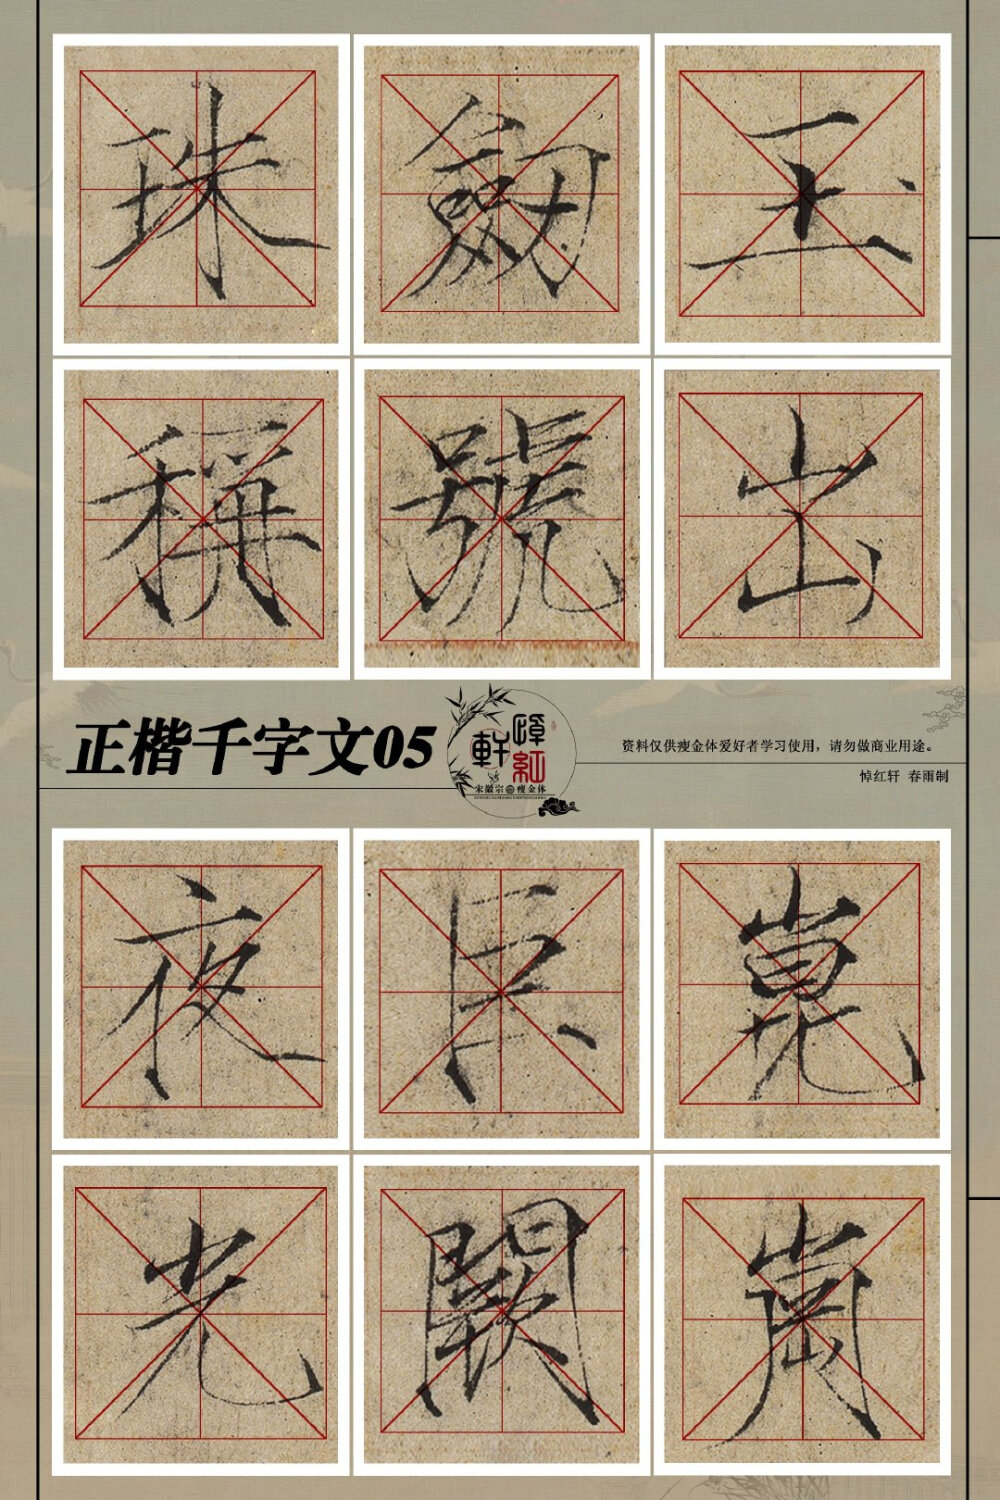 玉出崑崗
劒號巨闕
珠稱夜光
正楷千字文05
悼紅軒
宋徽宗瘦金体
资料仅供瘦金体爱好者学习使用，请勿做商业用途。
悼红轩 春雨制